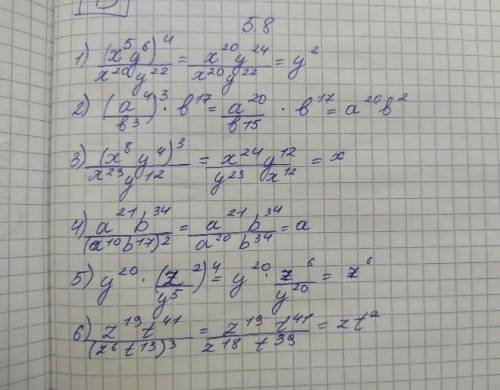 5.8
1) (x⁵y⁶)⁴ / x²⁰y²² = x²⁰y²⁴ / x²⁰y²² = y²
2) (a⁴ / b³)³ · b¹⁷ = a²⁰ / b¹⁵ · b¹⁷ = a²⁰b²
3) (x⁸y⁴)³ / x²³y¹² = x²⁴y¹² / y²³x¹² = x
4) a²¹b³⁴ / (a¹⁰b¹⁷)² = a²¹b³⁴ / a²⁰b³⁴ = a
5) y²⁰ · (z² / y⁵)⁴ = y²⁰ · z⁶ / y²⁰ = z⁶
6) z¹⁹t⁴¹ / (z⁶t¹³)³ = z¹⁹t⁴¹ / z¹⁸t³⁹ = zt²